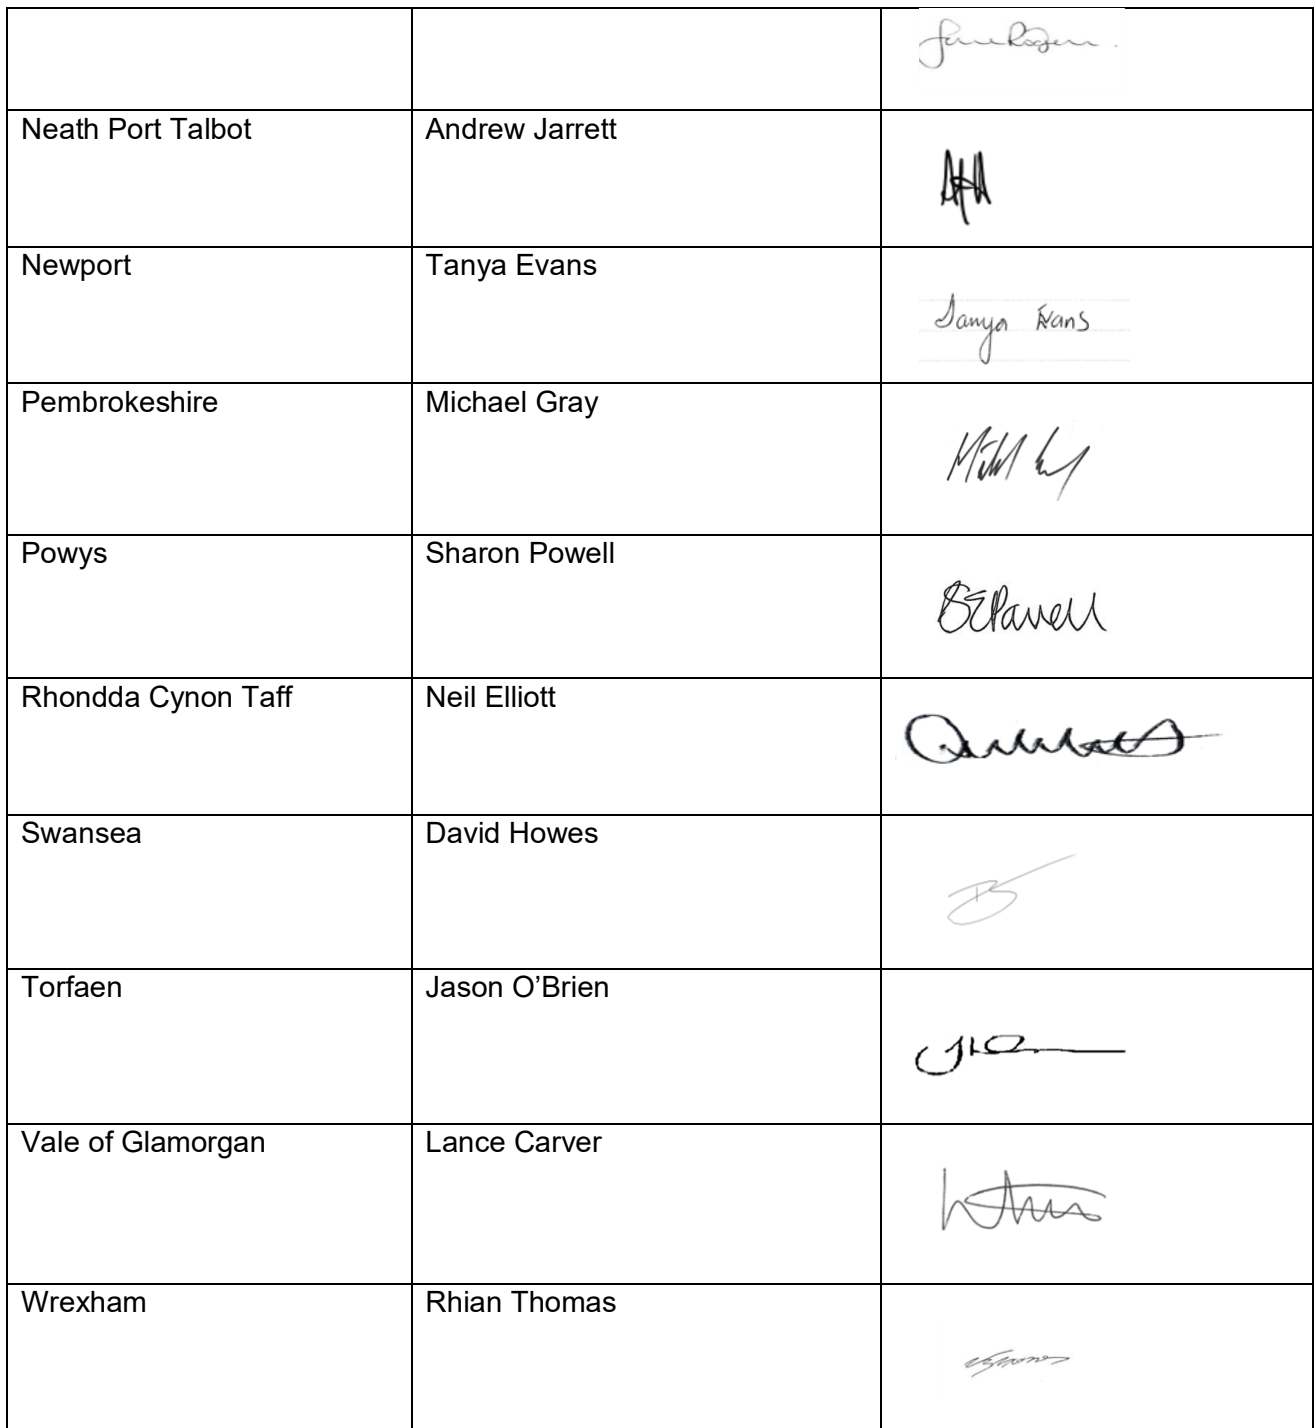 Neath Port Talbot Andrew Jarrett
Newport Tanya Evans
Tanya Evans
Pembrokeshire Michael Gray
Powys Sharon Powell
SEPowell
Rhondda Cynon Taff Neil Elliott
Swansea David Howes
Torfaen Jason O’Brien
Vale of Glamorgan Lance Carver
Wrexham Rhian Thomas